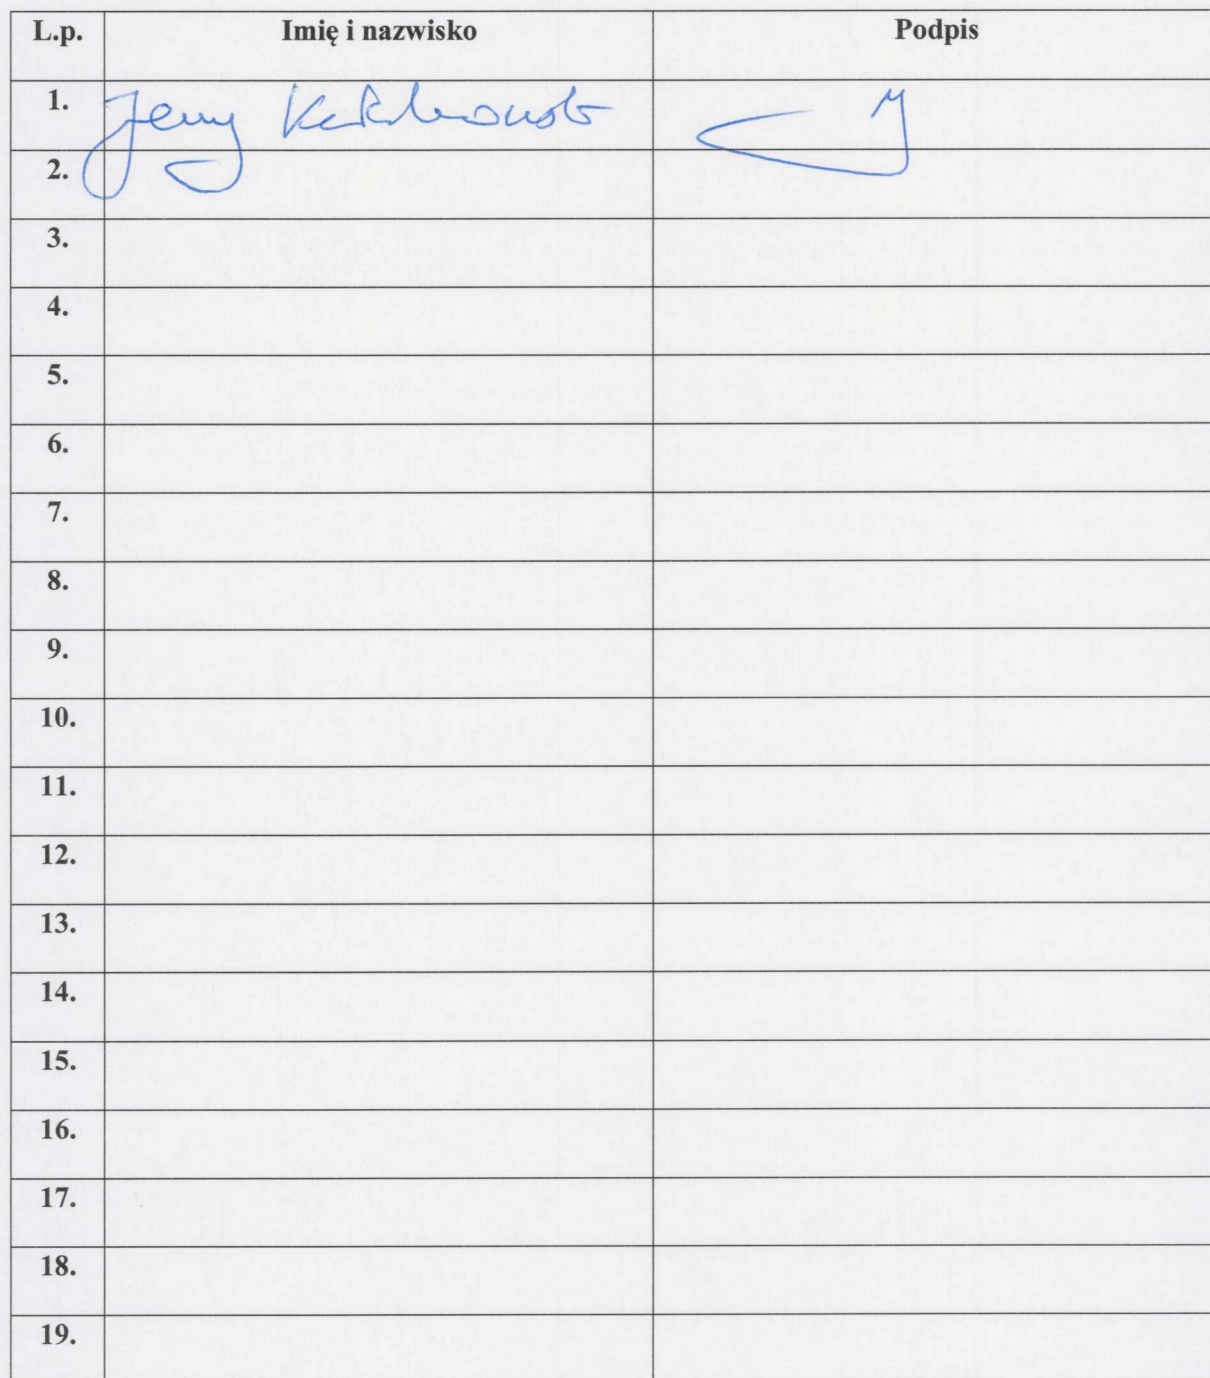 L.p. Imię i nazwisko Podpis
1. Jerzy
2.
3.
4.
5.
6.
7.
8.
9.
10.
11.
12.
13.
14.
15.
16.
17.
18.
19.